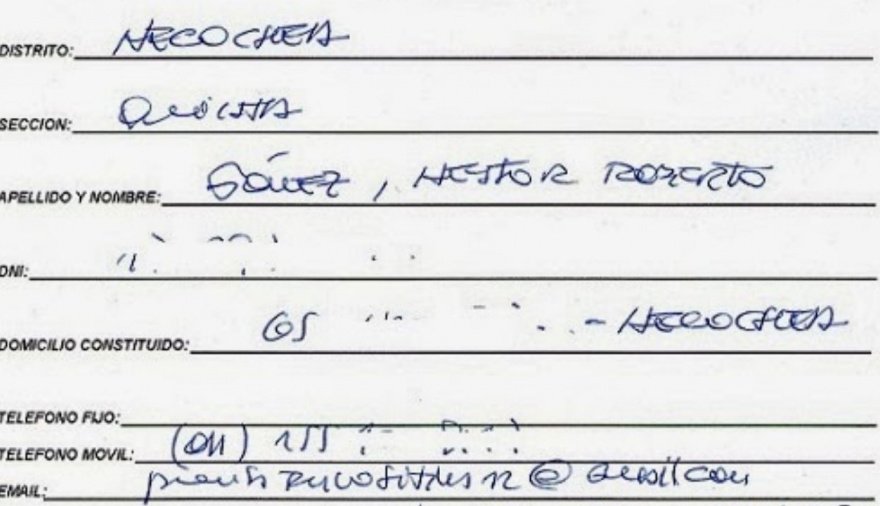 DISTRITO: NECOCHEA
SECCION: QUINTA
APELLIDO Y NOMBRE: GÓMEZ, HESTOR ROBERTO
DNI:
DOMICILIO CONSTITUIDO: 65 - NECOCHEA
TELEFONO FIJO:
TELEFONO MOVIL: (011) 155
EMAIL: